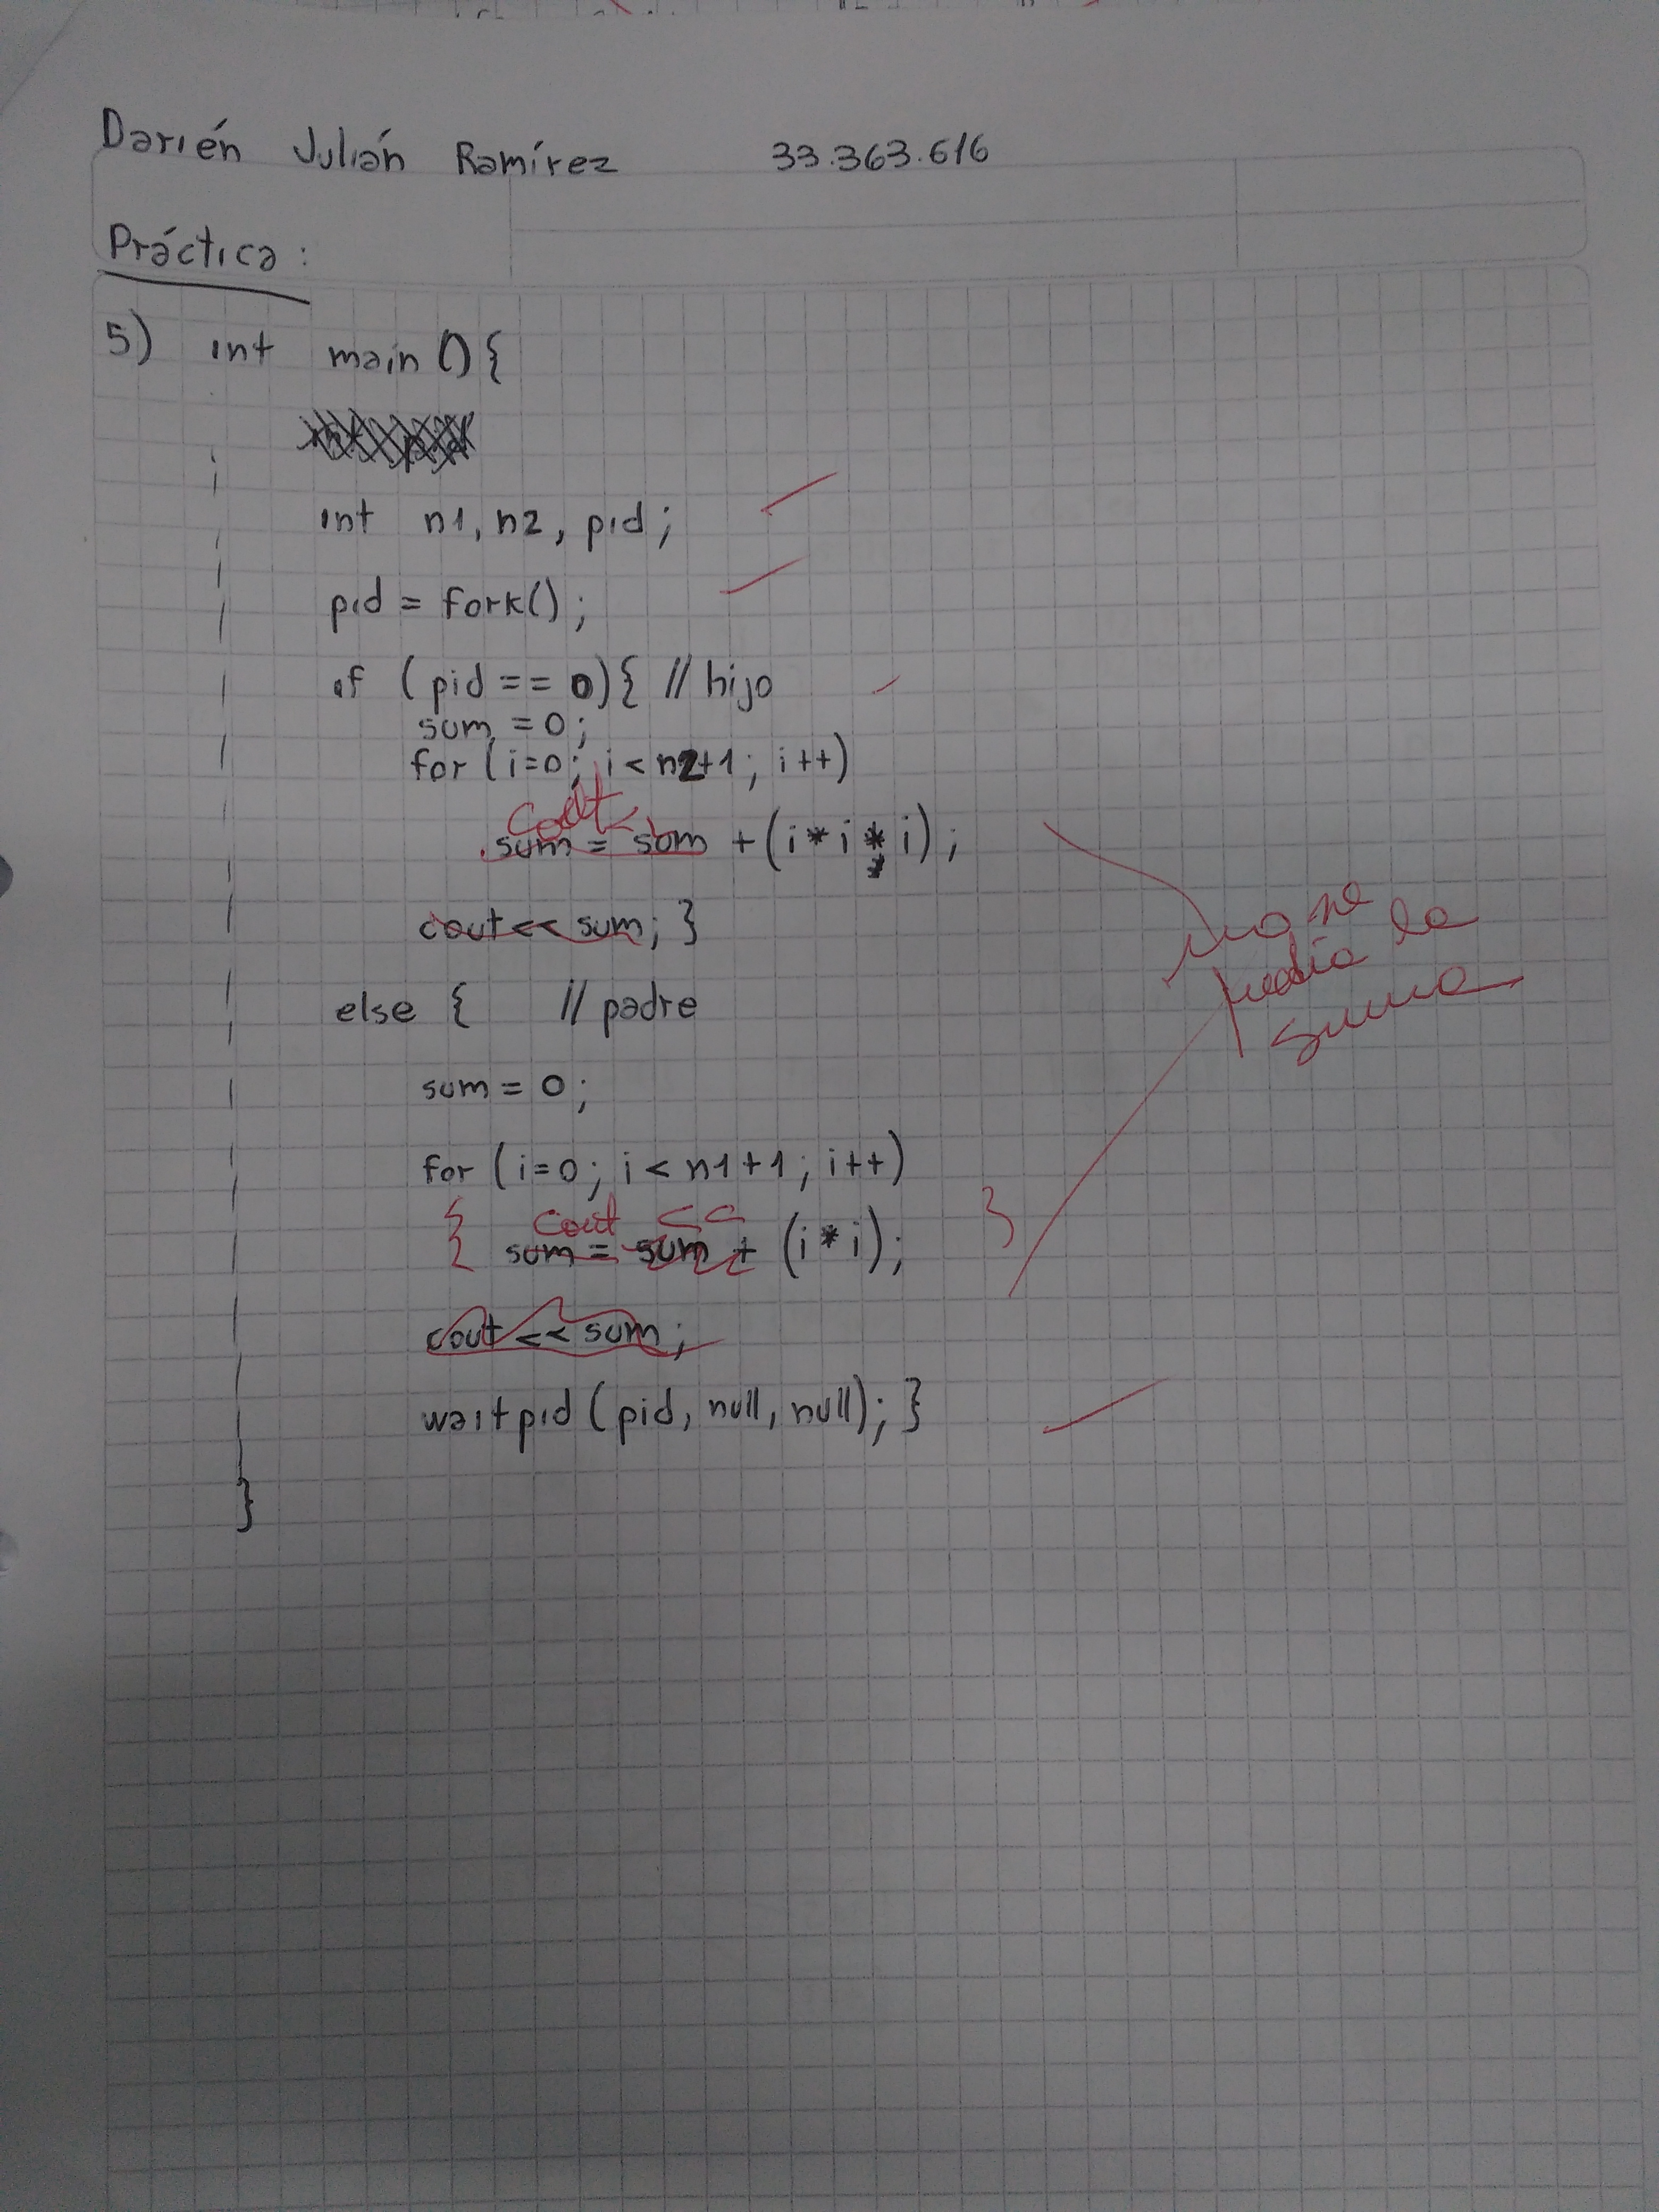 Darién Julián Ramírez 33.363.616
Práctica:
5) int main(){
int n1, n2, pid;
pid = fork();
if (pid == 0){ // hijo
sum = 0;
for (i=0; i < n2+1; i++)
cout <<
sum = sum + (i*i*i);
cout << sum; }
no se
pedia la
suma
else { // padre
sum = 0;
for (i=0; i < n1+1; i++)
{ cout << }
sum = sum + (i*i);
cout << sum;
waitpid (pid, null, null); }
}